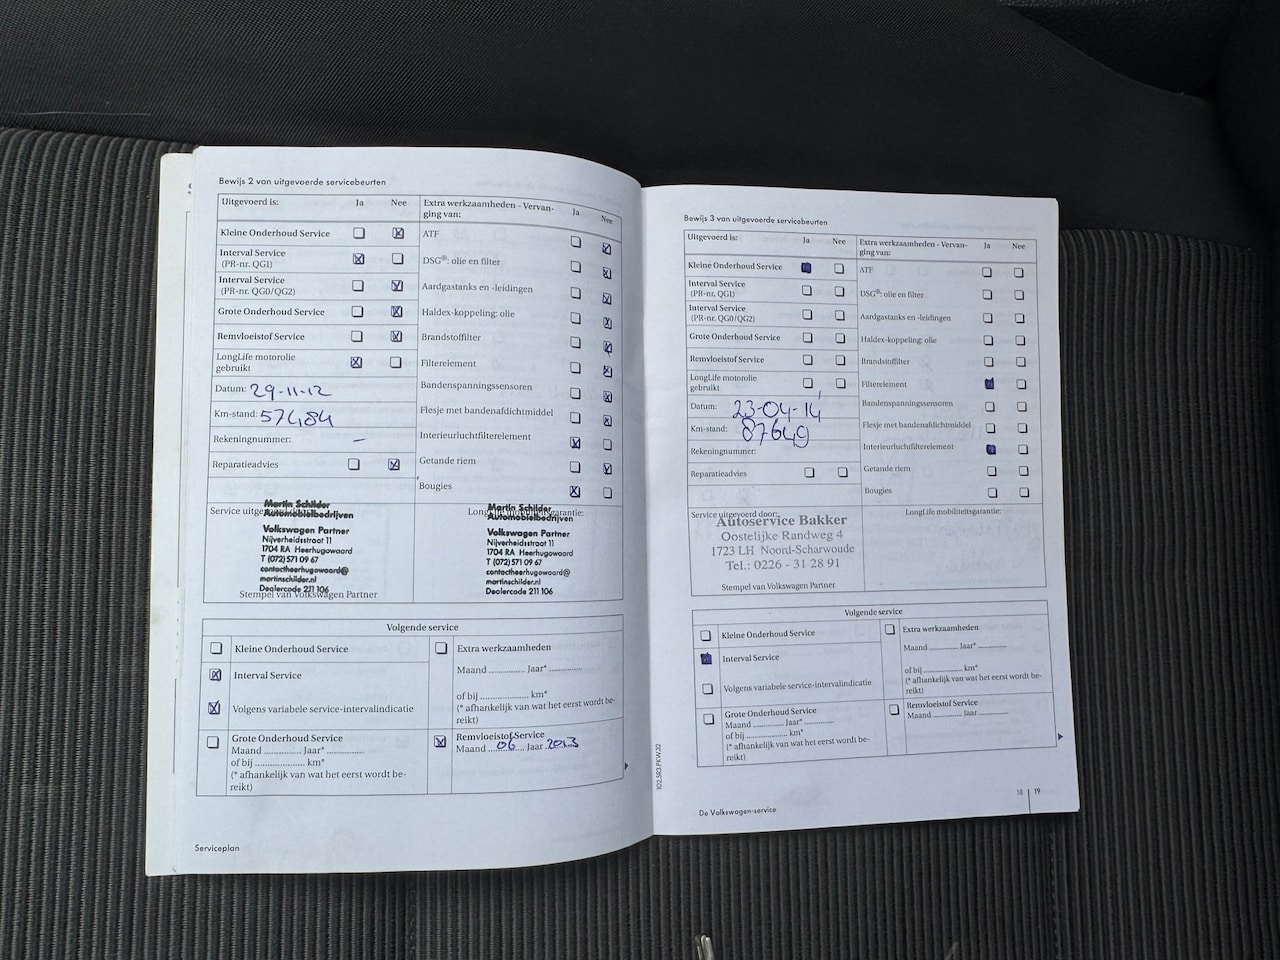 Bewijs 2 van uitgevoerde servicebeurten
Uitgevoerd is: Ja Nee
Kleine Onderhoud Service
Interval Service
(PR-nr. QG1)
Interval Service
(PR-nr. QG0/QG2)
Grote Onderhoud Service
Remvloeistof Service
LongLife motorolie
gebruikt
Datum: 29-11-12
Km-stand: 57484
Rekeningnummer: –
Reparatieadvies
Extra werkzaamheden - Vervan-
ging van: Ja Nee
ATF
DSG®: olie en filter
Aardgastanks en -leidingen
Haldex-koppeling: olie
Brandstoffilter
Filterelement
Bandenspanningssensoren
Flesje met bandenafdichtmiddel
Interieurluchtfilterelement
Getande riem
Bougies
Martin Schilder
Automobielbedrijven
Volkswagen Partner
Nijverheidsstraat 11
1704 RA Heerhugowaard
T (072) 571 09 67
contactheerhugowaard@
martinschilder.nl
Dealercode 211 106
Stempel van Volkswagen Partner
Martin Schilder
Automobielbedrijven
Volkswagen Partner
Nijverheidsstraat 11
1704 RA Heerhugowaard
T (072) 571 09 67
contactheerhugowaard@
martinschilder.nl
Dealercode 211 106
Volgende service
Kleine Onderhoud Service
Interval Service
Volgens variabele service-intervalindicatie
Grote Onderhoud Service
Maand ............ Jaar* ............
of bij ............ km*
(* afhankelijk van wat het eerst wordt be-
reikt)
Extra werkzaamheden
Maand ............ Jaar* ............
of bij ............ km*
(* afhankelijk van wat het eerst wordt be-
reikt)
Remvloeistof Service
Maand 06 Jaar 2013
Serviceplan
102.5R3.PKW.32
Bewijs 3 van uitgevoerde servicebeurten
Uitgevoerd is: Ja Nee
Kleine Onderhoud Service
Interval Service
(PR-nr. QG1)
Interval Service
(PR-nr. QG0/QG2)
Grote Onderhoud Service
Remvloeistof Service
LongLife motorolie
gebruikt
Datum: 23-04-14
Km-stand: 87649
Rekeningnummer:
Reparatieadvies
Extra werkzaamheden - Vervan-
ging van: Ja Nee
ATF
DSG®: olie en filter
Aardgastanks en -leidingen
Haldex-koppeling: olie
Brandstoffilter
Filterelement
Bandenspanningssensoren
Flesje met bandenafdichtmiddel
Interieurluchtfilterelement
Getande riem
Bougies
Service uitgevoerd door:
Autoservice Bakker
Oostelijke Randweg 4
1723 LH Noord-Scharwoude
Tel.: 0226 - 31 28 91
Stempel van Volkswagen Partner
LongLife mobiliteitsgarantie:
Volgende service
Kleine Onderhoud Service
Interval Service
Volgens variabele service-intervalindicatie
Grote Onderhoud Service
Maand ............ Jaar* ............
of bij ............ km*
(* afhankelijk van wat het eerst wordt be-
reikt)
Extra werkzaamheden
Maand ............ Jaar* ............
of bij ............ km*
(* afhankelijk van wat het eerst wordt be-
reikt)
Remvloeistof Service
Maand ............ Jaar ............
De Volkswagen-service
18 | 19